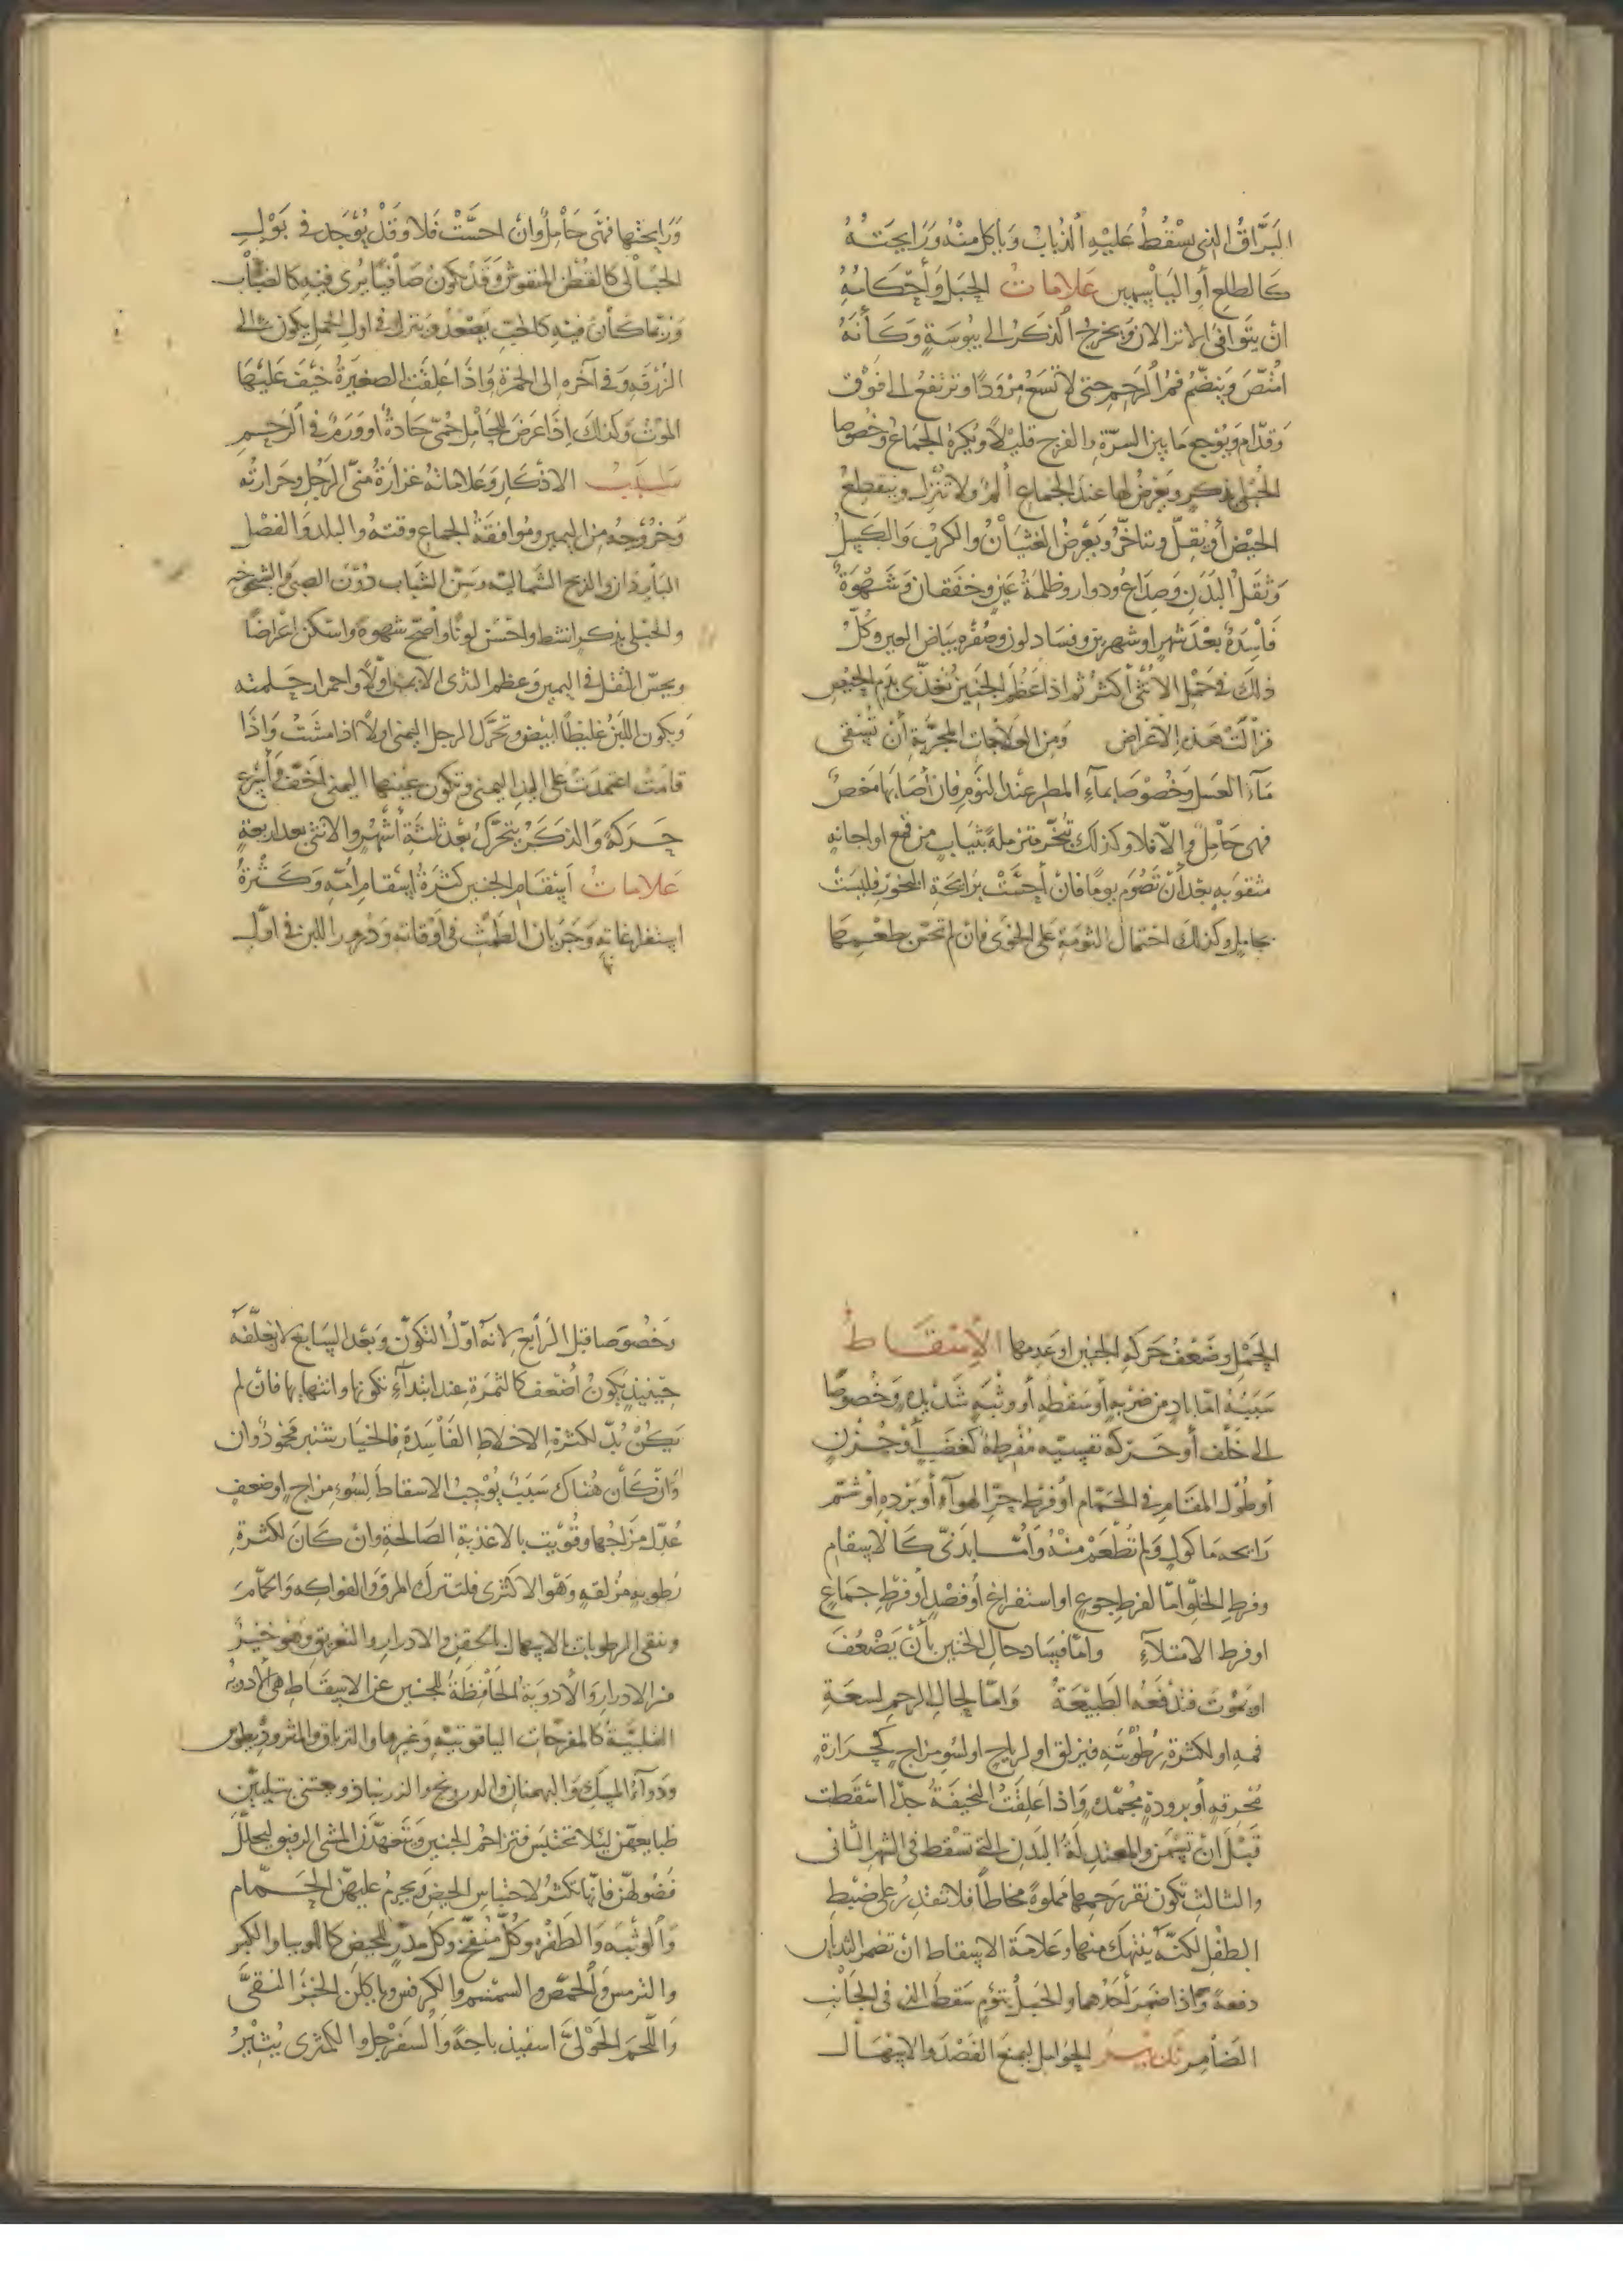 البَرَّاقُ الذي يسْقُطُ عَليْهِ الذُبابُ وَيأكل منْهُ وَرَايحَتهُ
كَالطلع أو اليَاسمين عَلامَاتُ الحَبَل وَأحْكَامُهُ
ان يَتَوافقَ الانزالان وَيخرج الذكَرُ الى يبُوسَةٍ وَكَأنَهُ
امْتُصّ وَينضمّ فمُ الرَحم حتى لا تسَعُ مِرْوَدًا وترتفع الى فوْق
وَقدّام وَيُوجع مَا بين السرّة والفرج قليْلاً ويُكرهُ الجمَاع وخُصُوصا
الحبْلى بذكر ويَعرضُ لها عند الجماع ألمٌ ولا تنْزل وينقطعُ
الحيْض أو يقلّ ويتاخّرُ ويَعْرضُ الغثيَانُ والكربُ وَالكَسَلُ
وَثقَلُ البَدَن وَصداعٌ ودوار وظلمَةُ عَين وخفقان وَشَهْوَةٌ
فَاسدَةٌ بعْدَ شهر او شهرين وفسَاد لون وصُفْره بيَاض العين وكلّ
ذلك في حَمْل الأنثى أكثرُ ثم اذا عَظُمَ الجنينُ تغذّى بدَم الحيْض
فزالَتْ هذه الأعْراض وَمن العَلامَات المجرَّبة أن تُسْقى
مَآءَ العسل وخُصُوصًا بماءِ المطر عندَ النوم فان أصَابَهَا مَغصٌ
فهى حَامل وَالا فلا وكذلك تُبخّر متزملةً بثيَابٍ من قمع او اجانه
مثقوبه بعْدَ أنْ تصُومَ يومًا فان أحسَّتْ برَايحَة البخور فليسَتْ
بحامل وكذلك احتمال الثومَةِ على الخوَى فان لم تحسّ طعْمهَا
وَرَايحتها فهَى حَامل وان احسَّتْ فَلا وقَدْ يُوجَد في بَوْل
الحَبالى كالقُطن المنفوش وَقَدْ يكونُ صَافيًا يُرى فيْه كالضبَاب
وَرُبّما كَانَ فيْه كالحبّ يصْعَدُ وينزل وفي اول الحمل يكون الى
الزُرقه وَفي آخره الى الحمرة وَاذَا عَلقت الصغيرَةُ خيْفَ عَليْهَا
الموْتُ وكذلك إذا عَرضَ للحَامل حُمّى حادّةٌ او وَرَمٌ في الرَحم
سَبَبُ الاذكار وَعَلامَاتهُ غزارَةُ مَنىّ الرَجُل وحَرارتُه
وَخرُوجُه من اليمين ومُوافقةُ الجماع وقتهُ والبلد والفصْل
البَاردان والريح الشمَاليّه وَسنّ الشبَاب دُوْن الصبى والشيخوخه
والحبْلى بذكر انشط واحْسن لونًا واصَحّ شهوة واسْكن اعْراضًا
ويحسّ الثقل في اليمين وعظم الثدى الايمن أولاً واحمرار حَلمته
وَيكون اللبنُ غليظًا ابيض وتحرّك الرجل اليمنى اولاً اذا مشَتْ وَاذَا
قامَتْ اعتمدَتْ على اليد اليمنى وتكون عينها اليمنى اخفّ وأسْرع
حَركةً وَالذكَرُ يتحَرَّكُ بعْدَ ثلثَةِ أشهُر والانثى بعد اربعةٍ
عَلامَاتُ اسْقَام الجنين كثرَةُ اسْقام أمّه وَكَثْرَةُ
استفراغاته وَجَرَيَان الطَمْث في أوْقاته وَدُرور اللبن في أوّل
الحَمْل وضَعْفُ حَركة الجنين او عَدمها الإسْقَاط
سَبَبُهُ امّا بادٍ من ضربةٍ أو سَقطَةٍ أو وثْبَةٍ شَديْدةٍ وَخُصُوصًا
الى خَلْف أو حَرَكة نفسيّه مُفْرطَةٍ كغضَبٍ أوْ حُزْن
أو طُوْل المقَام في الحَمّام أوْ فَرْط حَرّ الهوآء أو بَرْده او شَمّ
رَايحه مَا كول وَلم تُطْعَمْ منْهُ وَامّا بَدَنىّ كالاسْقام
وفرط الخلوّ امّا لفرط جوع او استفراغ أو فصْد أو فرط جماع
او فرط الامتلآء وامّا فسَاد حال الجنين بأنْ يَضْعُفَ
او يمُوتَ فتدْفعهُ الطبيْعَةُ وَامّا لحال الرحم لسعَة
فمه او لكثرة رطُوبَتهِ فيَزلق او لرياح او لسُو مزاج كحَرارةٍ
مُحْرقةٍ أو برودةٍ مُجْمدةٍ وَاذا عَلقَتْ النحيفَةُ جدًّا اسْقطت
قَبْلَ انْ تسْمن والمعتدلَةُ البَدن التي تسْقط في الشهر الثانى
والثالث تكون نقر رَحمها مملوةً مخاطًا فلا تقدرُ على ضبْط
الطفْل لكنّهُ ينتهك منها وعَلامَة الاسْقاط ان تضمر الثديان
دفعةً وَاذا ضمَرَ أحَدُهما والحَبلُ بتوءم سَقط الذى في الجانب
الضَامر تدبيرُ الحَوامل يمنع الفَصْد والاسْهَال
وَخُصُوصا قبل الرَابع لانهُ اوّلُ التكوّن وَبعْد السَابع لان تعلّقهُ
حيْنيذ يكونُ أضْعف كالثمرَة عند ابتدآء تكونها وانتهايها فان لم
يَكنْ بُدّ لكثرة الاخلاط الفَاسدَة فالخيَار شنبر محمُودٌ وان
وَان كَانَ هُناك سَبَبٌ يُوْجبُ الاسْقاط لسُوء مزاج او ضعف
عُدّل مزاجُها وقُوّيت بالاغذية الصَالحة وان كَانَ لكثرة
رُطوبه مُزلقةٍ وَهْو الاكثرى فلتترك المرق والفواكه وَالحمّامَ
وينقى الرطوبات بالاسْهال بالحقن والادرار والتعريق وهُو خيْرٌ
من الادرار وَالأدويَة الحَافظَةُ للجنين عن الاسْقَاط هي الأدويه
القلبيّةُ كالمفرّحات الياقوتيّه وَغيرها والترياق والمثروديطوس
ودوآءُ المسك والبهمنان والدرونج والزرنباد ويعتنى بتليين
طبايعهن ليلا تحتبسَ فتزاحم الجنين وَيتعَهّدْن المشى الرفيق ليحلّل
فضُولهنّ فانّها تكثر لاحْتباس الحيض ويَحْرمُ عليهنّ الحَمّام
وَالوثبَه وَالطفْره وَكُلّ منْفخ وكلّ مدّر للحيض كاللوبيا والكبر
والترمس والحمّص والسمسم والكرفس ويأكلن الخبز المنقى
وَاللحمَ الحَوْلىَّ اسفيذباجةً وَالسفرْجل والكمثرى يُشهِّيْ